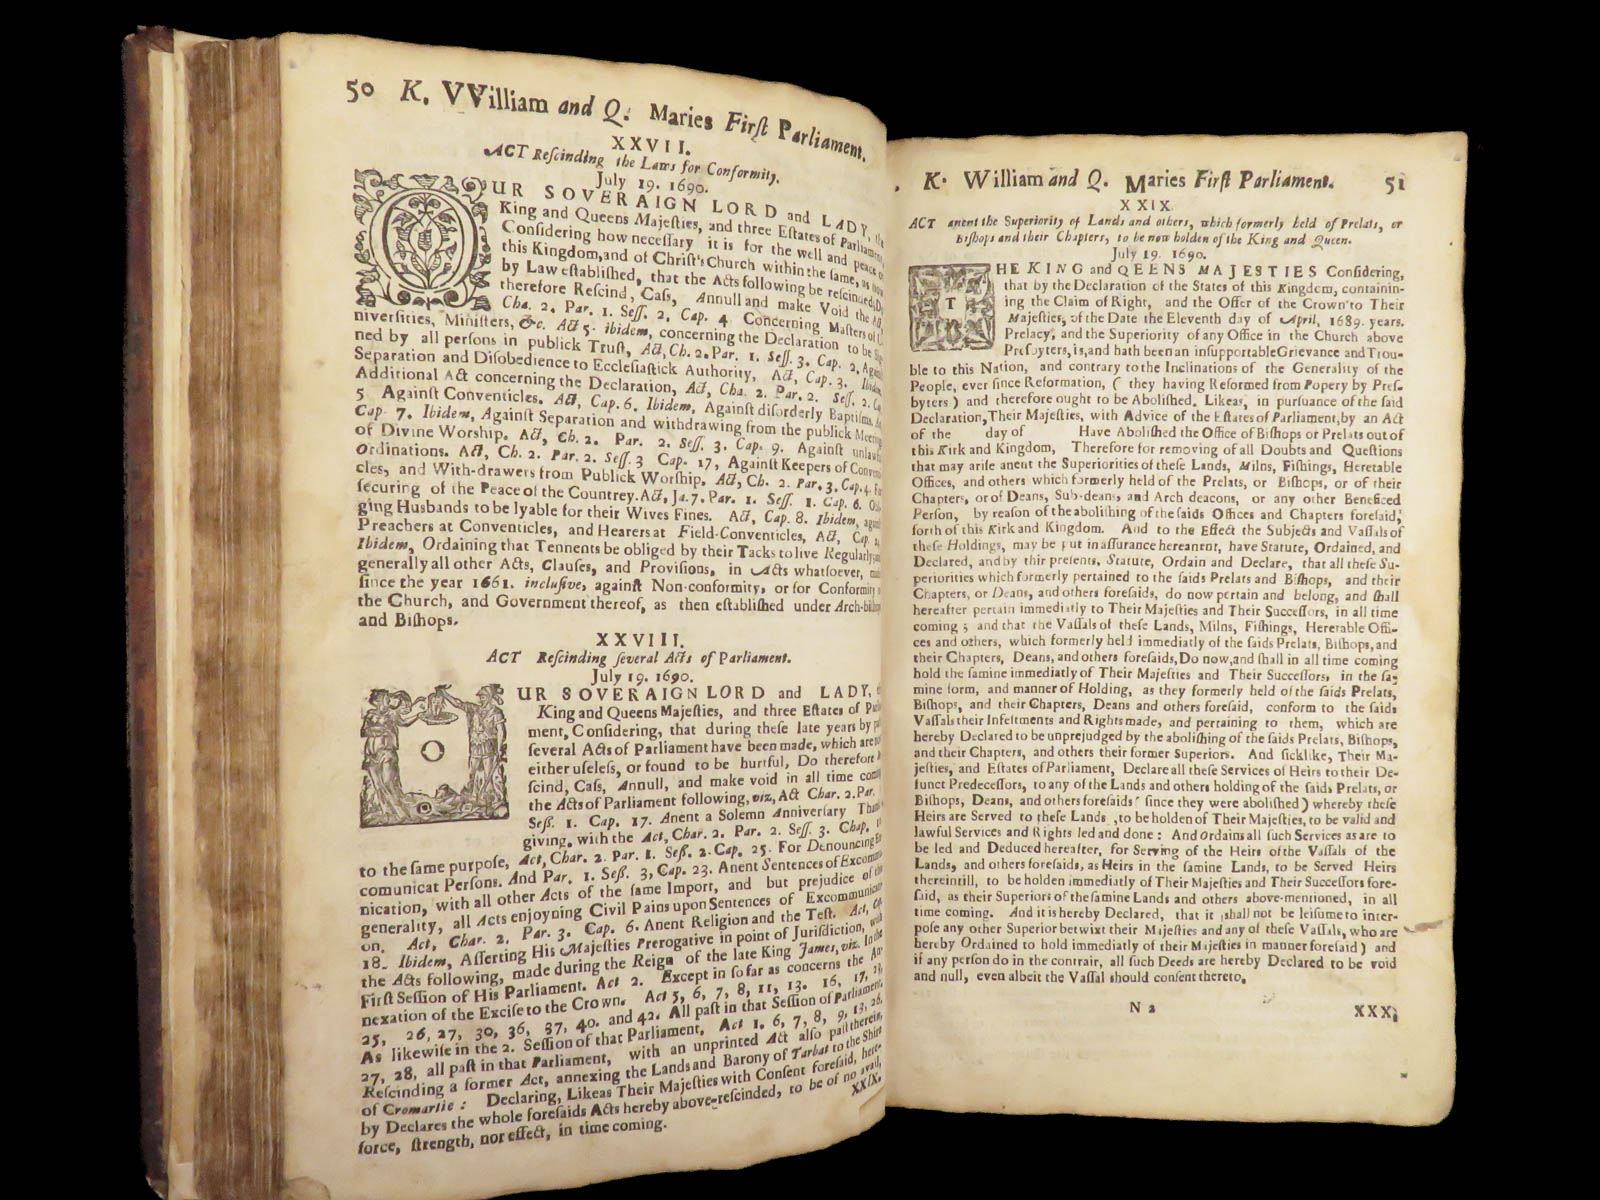 50 K. VVilliam and Q. Maries Firſt Parliament.
XXVII.
ACT Reſcinding the Laws for Conformity.
July 19. 1690.
OUR SOVERAIGN LORD and LADY, the
King and Queens Majeſties, and three Eſtates of Parliament,
Conſidering how neceſſary it is for the well and peace of
this Kingdom, and of Chriſt's Church within the ſame, as now
by Law eſtabliſhed, that the Acts following be reſcinded; Do
therefore Reſcind, Caſs, Annull and make Void the Act,
Cha. 2. Par. 1. Seſſ. 2. Cap. 4 Concerning Maſters of U-
niverſities, Miniſters, &c. Act 5. ibidem, concerning the Declaration to be Sig-
ned by all perſons in publick Truſt, Act, Ch. 2. Par. 1. Seſſ. 3. Cap. 2. Againſt
Separation and Diſobedience to Eccleſiaſtick Authority, Act, Cap. 3. Ibidem,
Additional Act concerning the Declaration, Act, Cha. 2. Par. 2. Seſſ. 2. Cap.
5 Againſt Conventicles. Act, Cap. 6. Ibidem, Againſt diſorderly Baptiſms. Act,
Cap 7. Ibidem, Againſt Separation and withdrawing from the publick Meetings
of Divine Worſhip. Act, Ch. 2. Par. 2. Seſſ. 3. Cap. 9. Againſt unlawful
Ordinations. Act, Ch. 2. Par. 2. Seſſ. 3 Cap. 17, Againſt Keepers of Conventi-
cles, and With-drawers from Publick Worſhip. Act, Ch. 2. Par. 3. Cap. 4. For
ſecuring of the Peace of the Countrey. Act, Ja. 7. Par. 1. Seſſ. 1. Cap. 6. Obli-
ging Husbands to be lyable for their Wives Fines. Act, Cap. 8. Ibidem, againſt
Preachers at Conventicles, and Hearers at Field-Conventicles, Act, Cap.
Ibidem, Ordaining that Tennents be obliged by their Tacks to live Regularly; and
generally all other Acts, Clauſes, and Proviſions, in Acts whatſoever, made
ſince the year 1661. incluſive, againſt Non-conformity, or for Conformity to
the Church, and Government thereof, as then eſtabliſhed under Arch-biſhops
and Biſhops.
XXVIII.
ACT Reſcinding ſeveral Acts of Parliament.
July 19. 1690.
OUR SOVERAIGN LORD and LADY,
King and Queens Majeſties, and three Eſtates of Parlia-
ment, Conſidering, that during theſe late years by paſt
ſeveral Acts of Parliament have been made, which are now
either uſeleſs, or found to be hurtful, Do therefore Re-
ſcind, Caſs, Annull, and make void in all time coming
the Acts of Parliament following, viz, Act Char. 2. Par. 1.
Seß. 1. Cap. 17. Anent a Solemn Anniverſary Thanks-
giving. with the Act, Char. 2. Par. 2. Seſſ. 3. Chap.
to the ſame purpoſe, Act, Char. 2. Par. 1. Seß. 2. Cap. 25. For Denouncing Ex-
comunicat Perſons. And Par. 1. Seſſ. 3, Cap. 23. Anent Sentences of Excommu-
nication, with all other Acts of the ſame Import, and but prejudice of the
generality, all Acts enjoyning Civil Pains upon Sentences of Excommunicati-
on. Act, Char. 2. Par. 3. Cap. 6. Anent Religion and the Teſt. Act, Cap.
18. Ibidem, Aſſerting His Majeſties Prerogative in point of Jurſdiction, with
the Acts following, made during the Reign of the late King James, viz. In the
Firſt Seſſion of His Parliament. Act 2. Except in ſo far as concerns the An-
nexation of the Exciſe to the Crown. Act 5, 6, 7, 8, 11, 13. 16, 17, 23,
25, 26, 27, 30, 36, 37, 40. and 42. All paſt in that Seſſion of Parliament.
As likewiſe in the 2. Seſſion of that Parliament, Act 1. 6, 7, 8, 9, 13, 26,
27, 28, all paſt in that Parliament, with an unprinted Act alſo paſt therein,
Reſcinding a former Act, annexing the Lands and Barony of Tarbat to the Shire
of Cromartie: Declaring, Likeas Their Majeſties with Conſent foreſaid, here-
by Declares the whole foreſaids Acts hereby above-reſcinded, to be of no avail,
force, ſtrength, nor effect, in time coming.
XXIX.
K. William and Q. Maries Firſt Parliament. 51
XXIX.
ACT anent the Superiority of Lands and others, which formerly held of Prelats, or
Biſhops and their Chapters, to be now holden of the King and Queen.
July 19. 1690.
THE KING and QEENS MAJESTIES Conſidering,
that by the Declaration of the States of this Kingdom, containin-
ing the Claim of Right, and the Offer of the Crown to Their
Majeſties, of the Date the Eleventh day of April, 1689. years.
Prelacy, and the Superiority of any Office in the Church above
Preſbyters, is, and hath been an inſupportable Grievance and Trou-
ble to this Nation, and contrary to the Inclinations of the Generality of the
People, ever ſince Reformation, ( they having Reformed from Popery by Preſ-
byters ) and therefore ought to be Aboliſhed. Likeas, in purſuance of the ſaid
Declaration, Their Majeſties, with Advice of the Eſtates of Parliament, by an Act
of the day of Have Aboliſhed the Office of Biſhops or Prelats out of
this Kirk and Kingdom, Therefore for removing of all Doubts and Queſtions
that may ariſe anent the Superiorities of theſe Lands, Milns, Fiſhings, Heretable
Offices, and others which formerly held of the Prelats, or Biſhops, or of their
Chapters, or of Deans, Sub-deans, and Arch deacons, or any other Beneficed
Perſon, by reaſon of the aboliſhing of the ſaids Offices and Chapters foreſaid,
forth of this Kirk and Kingdom. And to the Effect the Subjects and Vaſſals of
theſe Holdings, may be put in aſſurance hereanent, have Statute, Ordained, and
Declared, and by thir preſents, Statute, Ordain and Declare, that all theſe Su-
periorities which formerly pertained to the ſaids Prelats and Biſhops, and their
Chapters, or Deans, and others foreſaids, do now pertain and belong, and ſhall
hereafter pertain immediatly to Their Majeſties and Their Succeſſors, in all time
coming ; and that the Vaſſals of theſe Lands, Milns, Fiſhings, Hererable Offi-
ces and others, which formerly held immediatly of the ſaids Prelats, Biſhops, and
their Chapters, Deans, and others foreſaids, Do now, and ſhall in all time coming
hold the ſamine immediatly of Their Majeſties and Their Succeſſors, in the ſa-
mine form, and manner of Holding, as they formerly held of the ſaids Prelats,
Biſhops, and their Chapters, Deans and others foreſaid, conform to the ſaids
Vaſſals their Infeftments and Rights made, and pertaining to them, which are
hereby Declared to be unprejudged by the aboliſhing of the ſaids Prelats, Biſhops,
and their Chapters, and others their former Superiors. And ſicklike, Their Ma-
jeſties, and Eſtates of Parliament, Declare all theſe Services of Heirs to their De-
funct Predeceſſors, to any of the Lands and others holding of the ſaids Prelats, or
Biſhops, Deans, and others foreſaids ( ſince they were aboliſhed ) whereby theſe
Heirs are Served to theſe Lands, to be holden of Their Majeſties, to be valid and
lawful Services and Rights led and done : And Ordains all ſuch Services as are to
be led and Deduced hereafter, for Serving of the Heirs of the Vaſſals of the
Lands, and others foreſaids, as Heirs in the ſamine Lands, to be Served Heirs
thereintill, to be holden immediatly of Their Majeſties and Their Succeſſors fore-
ſaid, as their Superiors of the ſamine Lands and others above-mentioned, in all
time coming. And it is hereby Declared, that it ſhall not be leiſume to inter-
poſe any other Superior betwixt their Majeſties and any of theſe Vaſſals, who are
hereby Ordained to hold immediatly of their Majeſties in manner foreſaid ) and
if any perſon do in the contrair, all ſuch Deeds are hereby Declared to be void
and null, even albeit the Vaſſal ſhould conſent thereto.
N 2 XXX.